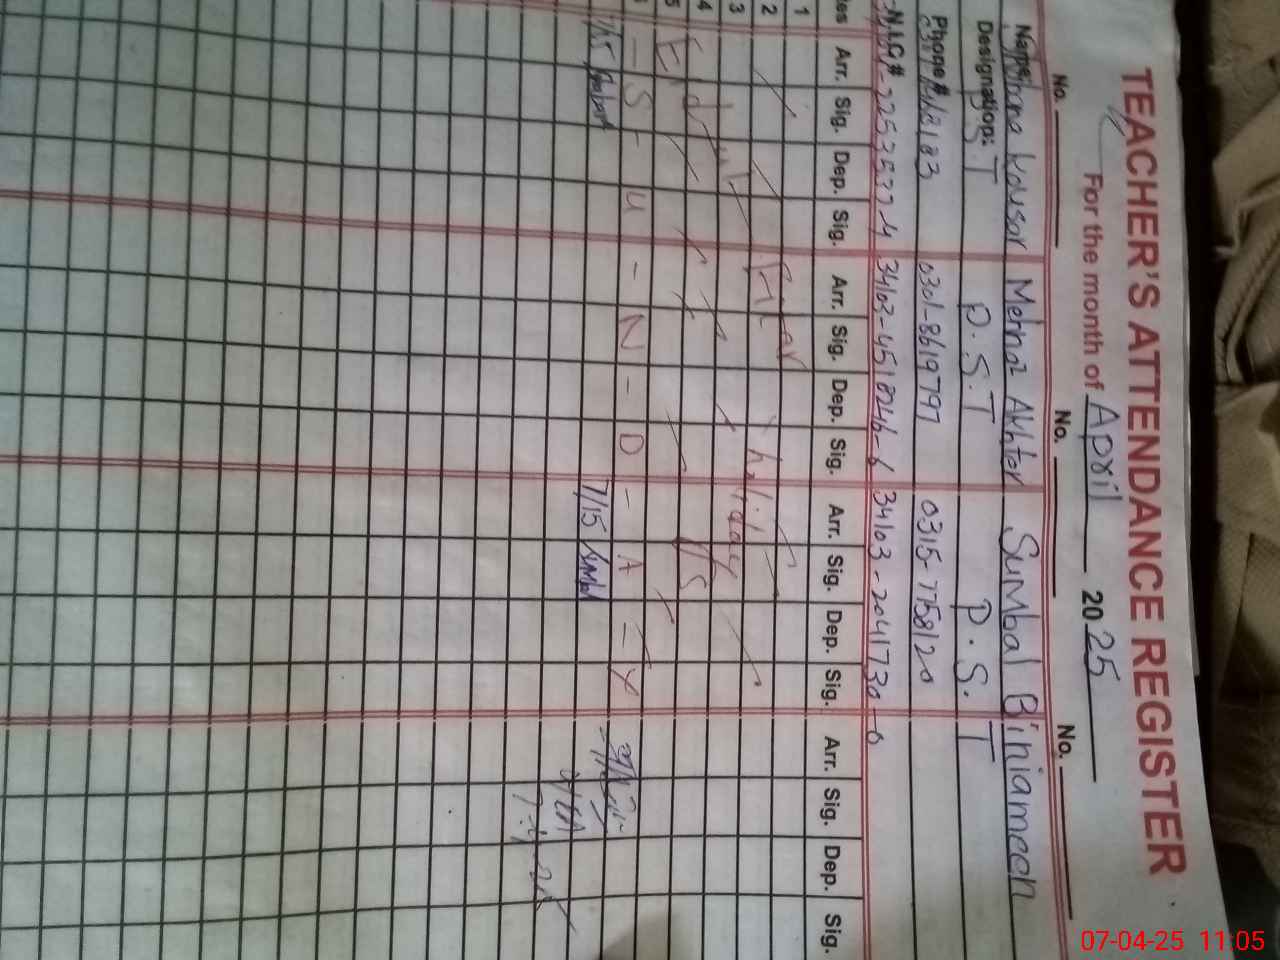 TEACHER'S ATTENDANCE REGISTER
For the month of April 2025
No. No. No.
Name: Kausar Mehnaz Akhtar Sumbal Biniameen
Designation: S.T P.S.T P.S.T
Phone # 0301-8619797 0315-7758120
N.I.C # 34103-4518246-6 34103-2041730-0
Arr. Sig. Dep. Sig. Arr. Sig. Dep. Sig. Arr. Sig. Dep. Sig. Arr. Sig. Dep. Sig.
1
2
3
4
5
Eid ul Fitar holidays
-S-U-N-D-A-Y
7/15 7/15 Sumbal
07-04-25 11:05